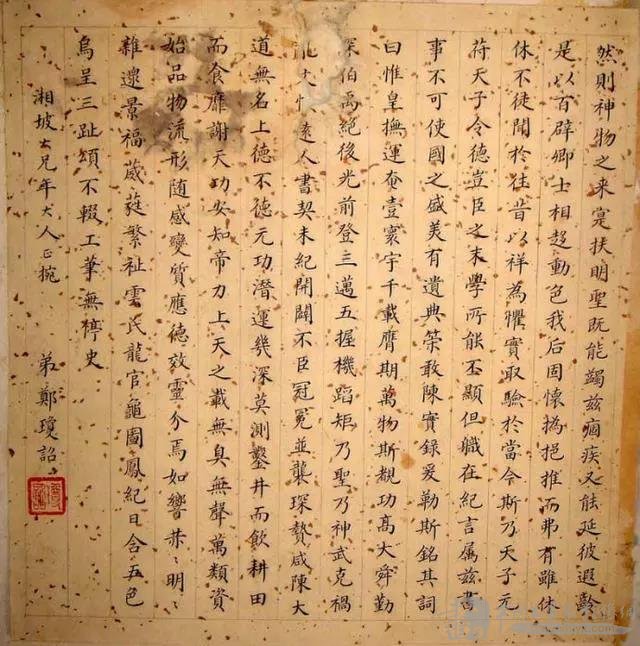 然則神物之来寔扶明聖既能蠲兹痼疾又能延彼遐齡
是以百辟卿士相趍動色我后固懷撝挹推而弗有雖休
休不徒聞於往昔以祥為懼實取驗於當今斯乃天子元
苻天子令德豈臣之末學所能丕顯但軄在紀言屬兹書
事不可使國之盛美有遺典榮敢陳實錄爰勒斯銘其詞
曰惟皇撫運奄壹寰宇千載膺期萬物斯覩功髙大舜勤
深伯禹絶後光前登三邁五握機蹈矩乃聖乃神武克禍
文遠人書契未紀開闢不臣冠冕並襲琛贄咸陳大
道無名上德不德元功潛運幾深莫測鑿井而飲耕田
而食靡謝天功安知帝力上天之載無臭無聲萬類資
始品物流形随感變質應德效靈介焉如響〻明〻
雜遝景福葳蕤繁祉雲氏龍官龜圖鳳紀日含五色
烏呈三趾頌不輟工筆無停史
湘坡大兄年大人正
弟鄭瓊詔